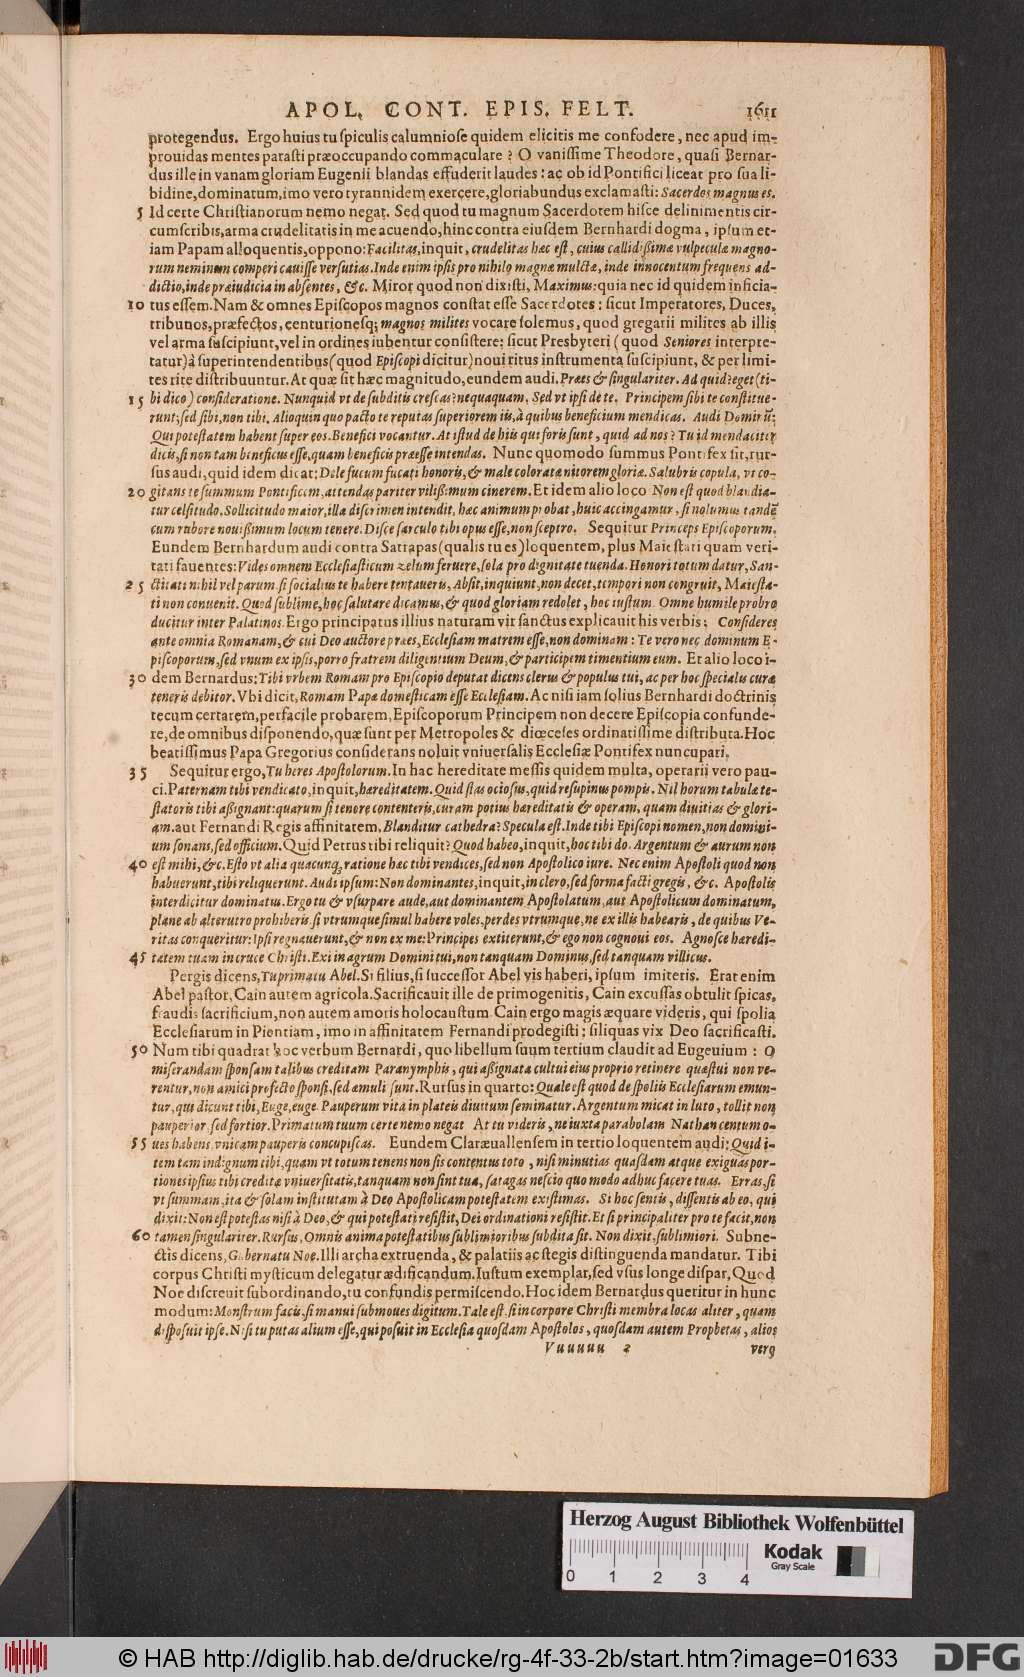 APOL. CONT. EPIS. FELT. 1611
protegendus. Ergo huius tu spiculis calumniose quidem elicitis me confodere, nec apud im-
prouidas mentes parasti præoccupando commaculare? O vanissime Theodore, quasi Bernar-
dus ille in vanam gloriam Eugenii blandas effuderit laudes: ac ob id Pontifici liceat pro sua li-
bidine, dominatum, imo vero tyrannidem exercere, gloriabundus exclamasti: Sacerdos magnus es.
5 Id certe Christianorum nemo negat. Sed quod tu magnum Sacerdotem hisce delinimentis cir-
cumscribis, arma crudelitatis in me acuendo, hinc contra eiusdem Bernhardi dogma, ipsum et-
iam Papam alloquentis, oppono: Facilitas, inquit, crudelitas hæc est, cuius callidissimæ vulpeculæ magno-
rum neminem comperi cauisse versutias. Inde enim ipsis pro nihilo magnæ mulctæ, inde innocentum frequens ad-
dictio, inde præiudicia in absentes, &c. Miror quod non dixisti, Maximus: quia nec id quidem inficia-
10 tus essem. Nam & omnes Episcopos magnos constat esse Sacerdotes: sicut Imperatores, Duces,
tribunos, præfectos, centurionesq; magnos milites vocare solemus, quod gregarii milites ab illis
vel arma suscipiunt, vel in ordines iubentur consistere: sicut Presbyteri (quod Seniores interpre-
tatur) à superintendentibus (quod Episcopi dicitur) noui ritus instrumenta suscipiunt, & per limi-
tes rite distribuuntur. At quæ sit hæc magnitudo, eundem audi. Præes & singulariter. Ad quid? eget (ti-
15 bi dico) consideratione. Nunquid vt de subditis crescas? nequaquam. Sed vt ipsi de te. Principem sibi te constitue-
runt; sed sibi, non tibi. Alioquin quo pacto te reputas superiorem iis, à quibus beneficium mendicas. Audi Dominū:
Qui potestatem habent super eos. Benefici vocantur. At istud de hiis qui foris sunt, quid ad nos? Tu id mendaciter
dicis, si non tam beneficus esse, quam beneficis præesse intendas. Nunc quomodo summus Pontifex sit, rur-
sus audi, quid idem dicat: Dele fucum fucati honoris, & male coloratæ nitorem gloriæ. Salubris copula, vt co-
20 gitans te summum Pontificem, attendas pariter vilissimum cinerem. Et idem alio loco Non est quod blandia-
tur celsitudo. Sollicitudo maior, illa discrimen intendit, hæc animum probat, huic accingamur, si nolumus tandē
cum rubore nouissimum locum tenere. Disce sarculo tibi opus esse, non sceptro. Sequitur Princeps Episcoporum.
Eundem Bernhardum audi contra Satrapas (qualis tu es) loquentem, plus Maiestati quam veri-
tati fauentes: Vides omnem Ecclesiasticum zelum feruere, sola pro dignitate tuenda. Honori totum datur, San-
25 ctitati nihil vel parum. si socialius te habere tentaueris, Absit, inquiunt, non decet, tempori non congruit, Maiesta-
ti non conuenit. Quod sublime, hoc salutare dicamus, & quod gloriam redolet, hoc iustum. Omne humile probro
ducitur inter Palatinos. Ergo principatus illius naturam vir sanctus explicauit his verbis: Consideres
ante omnia Romanam, & cui Deo auctore præes, Ecclesiam matrem esse, non dominam: Te vero nec dominum E-
piscoporum, sed vnum ex ipsis, porro fratrem diligentium Deum, & participem timentium eum. Et alio loco i-
30 dem Bernardus: Tibi vrbem Romam pro Episcopio deputat dicens clerus & populus tui, ac per hoc specialis curæ
teneris debitor. Vbi dicit, Romam Papæ domesticam esse Ecclesiam. Ac nisi iam solius Bernhardi doctrinis
tecum certarem, perfacile probarem, Episcoporum Principem non decere Episcopia confunde-
re, de omnibus disponendo, quæ sunt per Metropoles & diœceses ordinatissime distributa. Hoc
beatissimus Papa Gregorius considerans noluit vniuersalis Ecclesiæ Pontifex nuncupari.
35 Sequitur ergo, Tu heres Apostolorum. In hac hereditate messis quidem multa, operarii vero pau-
ci. Paternam tibi vendicato, inquit, hæreditatem. Quid stas ociosus, quid resupinus pompis. Nil horum tabulæ te-
statoris tibi assignant: quarum si tenore contenteris, curam potius hæreditatis & operam, quam diuitias & glori-
am. aut Fernandi Regis affinitatem. Blanditur cathedra? Specula est. Inde tibi Episcopi nomen, non domini-
um sonans, sed officium. Quid Petrus tibi reliquit? Quod habeo, inquit, hoc tibi do. Argentum & aurum non
40 est mihi, &c. Esto vt alia quacunq; ratione hæc tibi vendices, sed non Apostolico iure. Nec enim Apostoli quod non
habuerunt, tibi reliquerunt. Audi ipsum: Non dominantes, inquit, in clero, sed forma facti gregis, &c. Apostolis
interdicitur dominatus. Ergo tu & vsurpare aude, aut dominantem Apostolatum, aut Apostolicum dominatum,
plane ab alterutro prohiberis. si vtrumque simul habere voles, perdes vtrumque, ne ex illis habearis, de quibus Ve-
ritas conqueritur: Ipsi regnauerunt, & non ex me: Principes extiterunt, & ego non cognoui eos. Agnosce hæredi-
45 tatem tuam in cruce Christi. Exi in agrum Domini tui, non tanquam Dominus, sed tanquam villicus.
Pergis dicens, Tu primatu Abel. Si filius, si successor Abel vis haberi, ipsum imiteris. Erat enim
Abel pastor, Cain autem agricola. Sacrificauit ille de primogenitis, Cain excussas obtulit spicas,
fraudis sacrificium, non autem amoris holocaustum. Cain ergo magis æquare videris, qui spolia
Ecclesiarum in Pientiam, imo in affinitatem Fernandi prodegisti: siliquas vix Deo sacrificasti.
50 Num tibi quadrat hoc verbum Bernardi, quo libellum suum tertium claudit ad Eugenium: O
miserandam sponsam talibus creditam Paranymphis, qui assignata cultui eius proprio retinere quæstui non ve-
rentur, non amici profecto sponsi, sed æmuli sunt. Rursus in quarto: Quale est quod de spoliis Ecclesiarum emun-
tur, qui dicunt tibi, Euge, euge. Pauperum vita in plateis diuitum seminatur. Argentum micat in luto, tollit non
pauperior, sed fortior. Primatum tuum certe nemo negat. At tu videris, ne iuxta parabolam Nathan centum o-
55 ues habens, vnicam pauperis concupiscas. Eundem Claræuallensem in tertio loquentem audi: Quid i-
tem tam indignum tibi, quam vt totum tenens non sis contentus toto, nisi minutias quasdam atque exiguas por-
tiones ipsius tibi creditæ vniuersitatis, tanquam non sint tuæ, satagas nescio quo modo adhuc facere tuas. Erras, si
vt summam, ita & solam institutam à Deo Apostolicam potestatem existimas. Si hoc sentis, dissentis ab eo, qui
dixit: Non est potestas nisi à Deo, & qui potestati resistit, Dei ordinationi resistit. Et si principaliter pro te facit, non
60 tamen singulariter. Rursus, Omnis anima potestatibus sublimioribus subdita sit. Non dixit, sublimiori. Subne-
ctis dicens, Gubernatu Noe. Illi archa extruenda, & palatiis ac stegis distinguenda mandatur. Tibi
corpus Christi mysticum delegatur ædificandum. Iustum exemplar, sed vsus longe dispar, Quod
Noe discreuit subordinando, tu confundis permiscendo. Hoc idem Bernardus queritur in hunc
modum: Monstrum facis, si manui submoues digitum. Tale est, si in corpore Christi membra locas aliter, quam
disposuit ipse. Nisi tu putas alium esse, qui posuit in Ecclesia quosdam Apostolos, quosdam autem Prophetas, alios
Vuuuuu 2 vero
Herzog August Bibliothek Wolfenbüttel
Kodak
Gray Scale
0 1 2 3 4
© HAB http://diglib.hab.de/drucke/rg-4f-33-2b/start.htm?image=01633
DFG